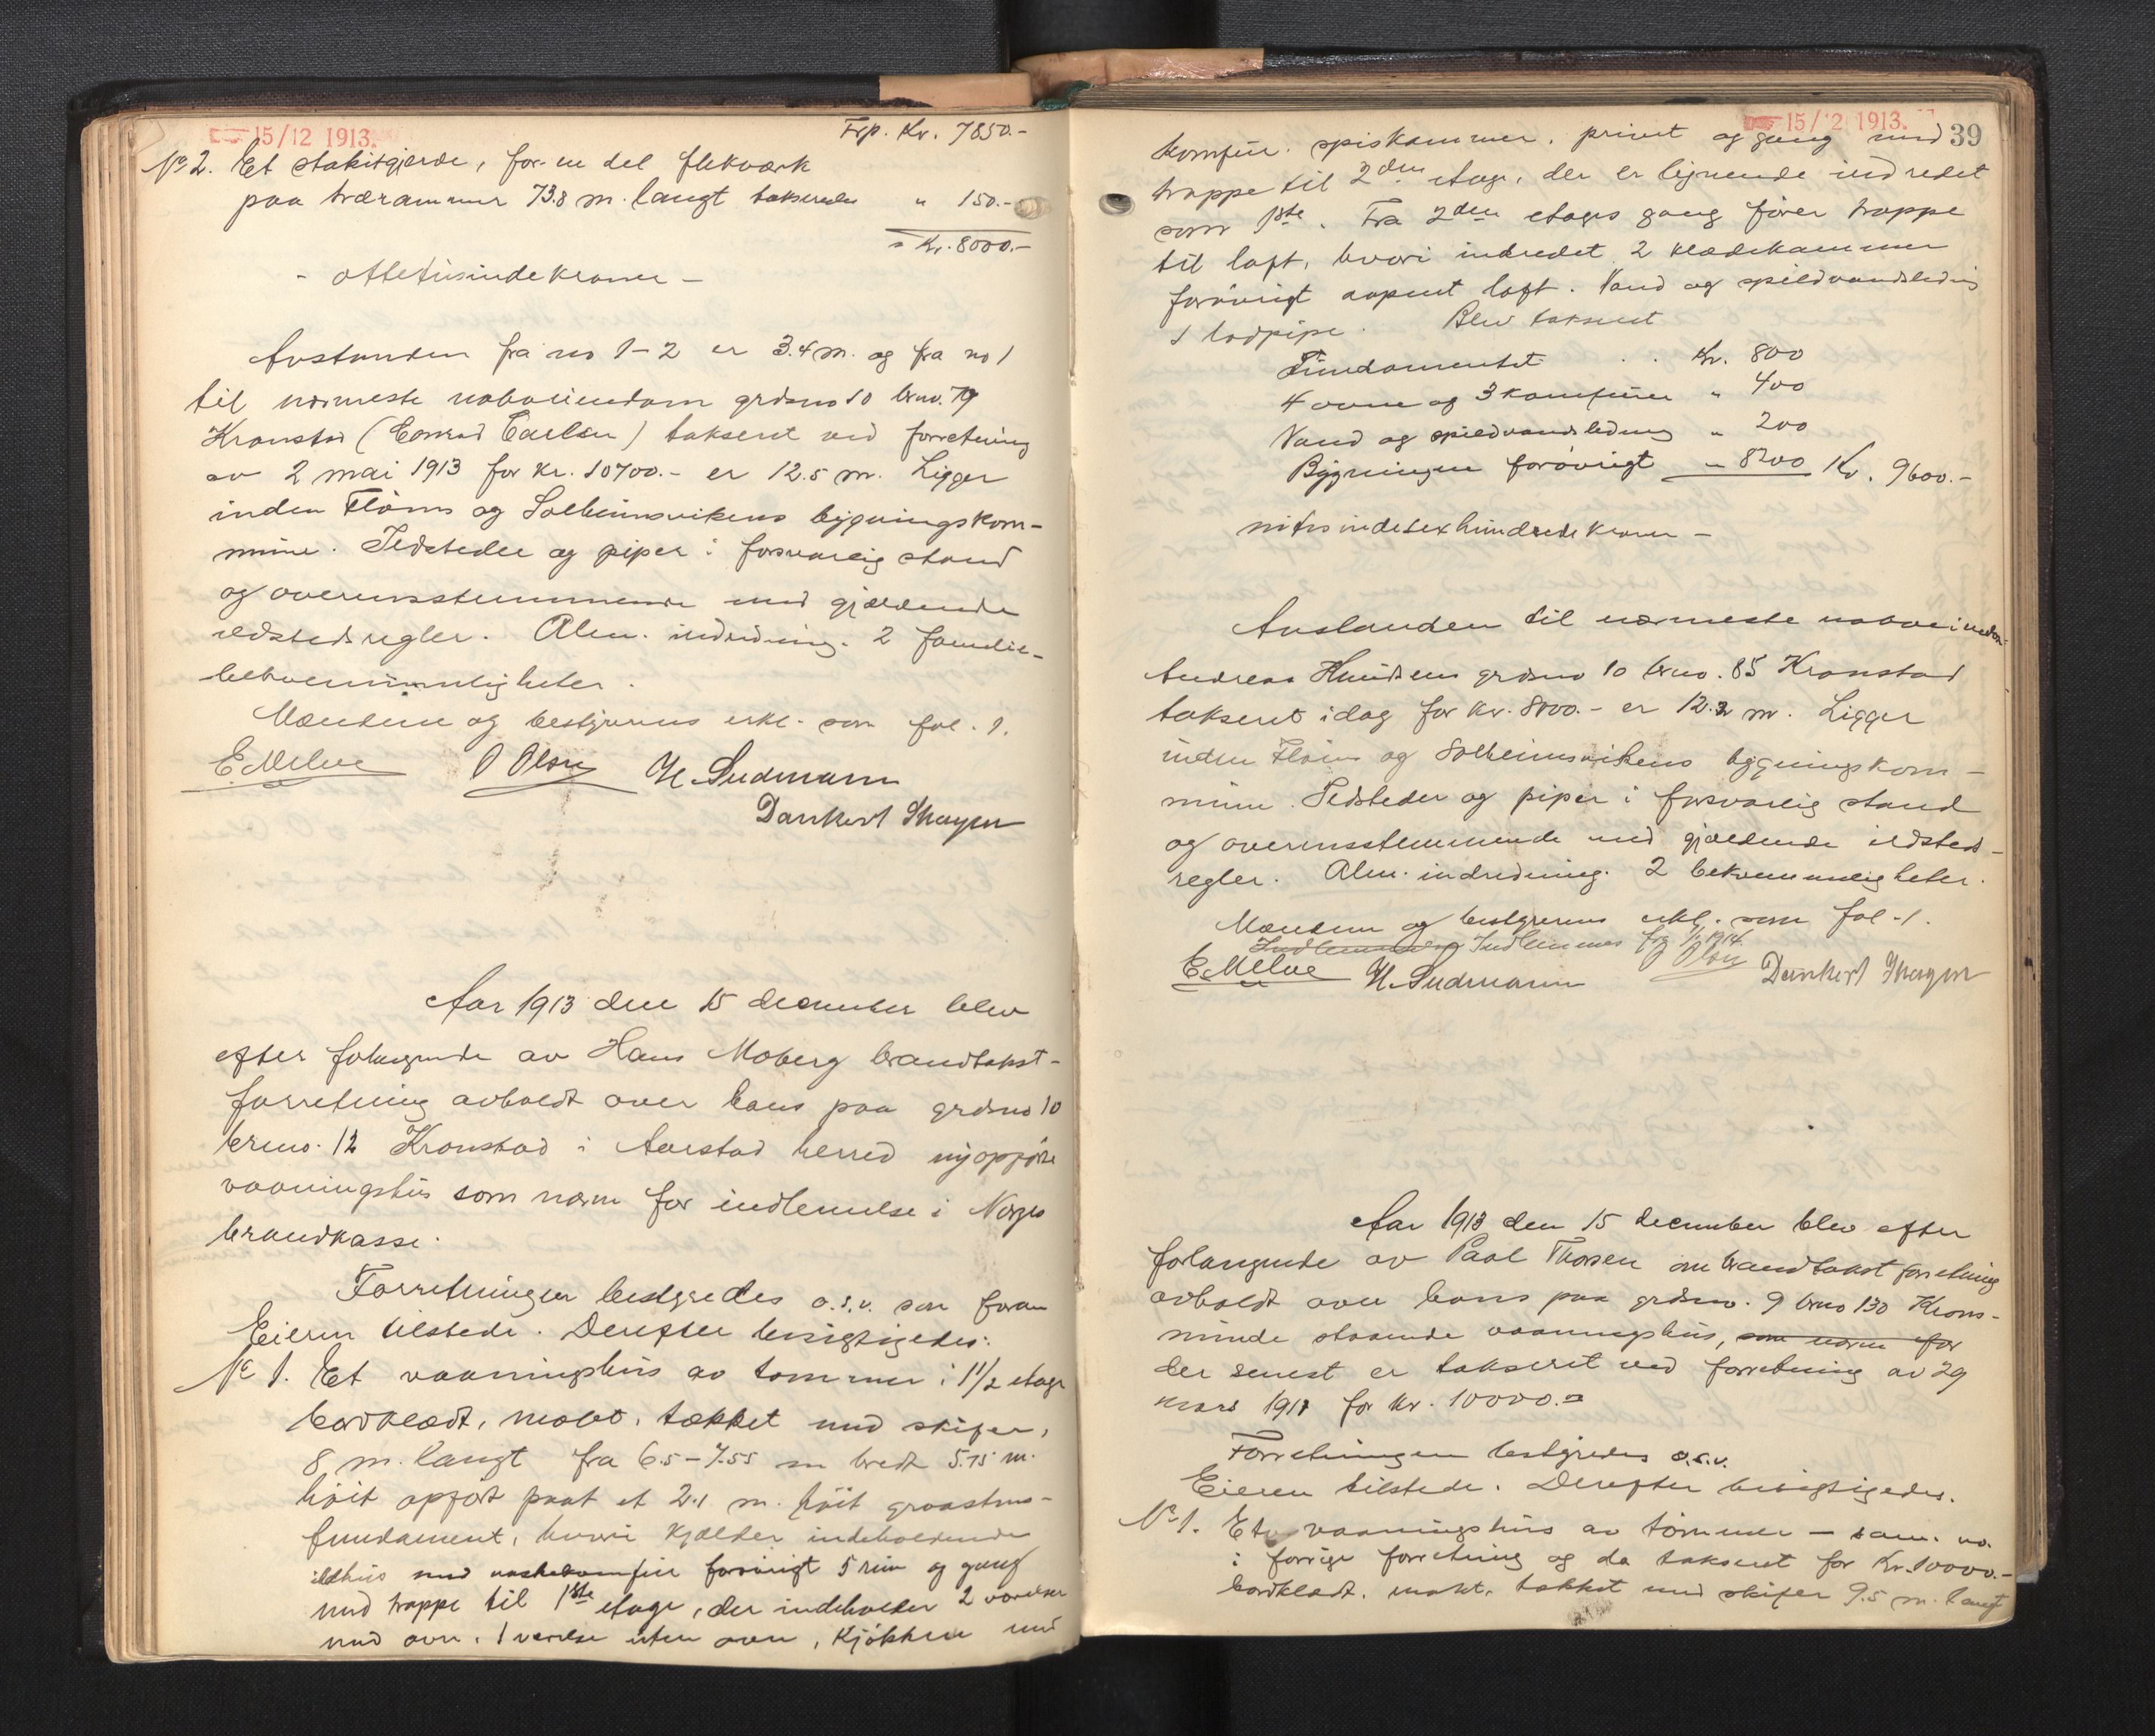 15/12 1913.
Trp. Kr. 7850.-
No 2. Et stakitgjerde, for en del flekverk
paa trærammer 73.8 m. langt takseredes " 150.-
= Kr. 8000.-
- ottetusinde kroner -
Avstanden fra no 1-2 er 3.4 m. og fra no 1
til nærmeste naboeiendom grdsno 10 brno. 79
Kronstad (Conrad Carlsen) takseret ved forretning
av 2 mai 1913 for Kr. 10700.- er 12.5 m. Ligger
inden Fløens og Solheimsvikens bygningskom-
mune. Ildsteder og piper i forsvarlig stand
og overensstemmende med gjældende
ildstedsregler. Alm. indredning. 2 familie-
bekvemmeligheter.
Mændene og bestyrerens erkl. som fol. 1.
E Melve O Olsen H. Sudmann
Dankert
Aar 1913 den 15 december blev
efter forlangende av Hans Moberg brandtakst-
forretning avholdt over hans paa grdsno 10
brno. 12 Kronstad i Aarstad herred nyopførte
vaaningshus som navn for indlemmelse i Norges
brandkasse.
Forretningen bestyredes o.s.v. som foran
Eieren tilstede. Derefter besigtigedes:
No 1. Et vaaningshus av tømmer i 1 1/2 etage
bordklædt, malet, tækket med skifer,
8 m. langt fra 6.5-7.55 m bredt 5.15 m.
høit opført paa et 2.1 m. høit graastens-
fundament, hvori kjælder indeholdende
ildhus med vaskekomfur forøvrigt 5 rum og gang
med trappe til 1ste etage, der indeholder 2 værelser
med ovn, 1 værelse uten ovn, kjøkken med
15/12 1913.
39
komfur, spiskammer, privet og gang med
trappe til 2den etage, der er lignende indredet
som 1ste. Fra 2den etages gang fører trappe
til loft, hvori indredet 2 klædekammer
forøvrigt aapent loft. Vand og spildvandsledning
1 lodpipe. Blev takseret
Fundamentet . . Kr. 800
4 ovne og 3 komfurer " 400
Vand og spildvandsledning " 200
Bygningen forøvrigt " 8200 Kr. 9600.-
nitusindesexhundrede kroner -
Avstanden til nærmeste naboeiendom
Andreas Knudsens grdsno 10 brno. 85 Kronstad
takseret idag for Kr. 8000.- er 12.2 m. Ligger
inden Fløens og Solheimsvikens bygningskom-
mune. Ildsteder og piper i forsvarlig stand
og overensstemmende med gjældende ildsteds-
regler. Alm. indredning. 2 bekvemmeligheter.
Mændene og bestyrerens erkl. som fol. 1.
Indlemmes fra 1/1 1914.
E Melve H. Sudmann O Olsen Dankert
Aar 1913 den 15 december blev efter
forlangende av Paal Thorsen om brandtakstforretning
avholdt over hans paa grdsno. 9 brno 130 Krons-
minde staaende vaaningshus, som navn for
der senest er takseret ved forretning av 29
mars 1911 for Kr. 10000.-
Forretningen bestyredes o.s.v.
Eieren tilstede. Derefter besigtigedes.
No 1. Et vaaningshus av tømmer - sam. no.
i forrige forretning og da takseret for Kr. 10000.-
bordklædt, malt, tækket med skifer 9.5 m. langt